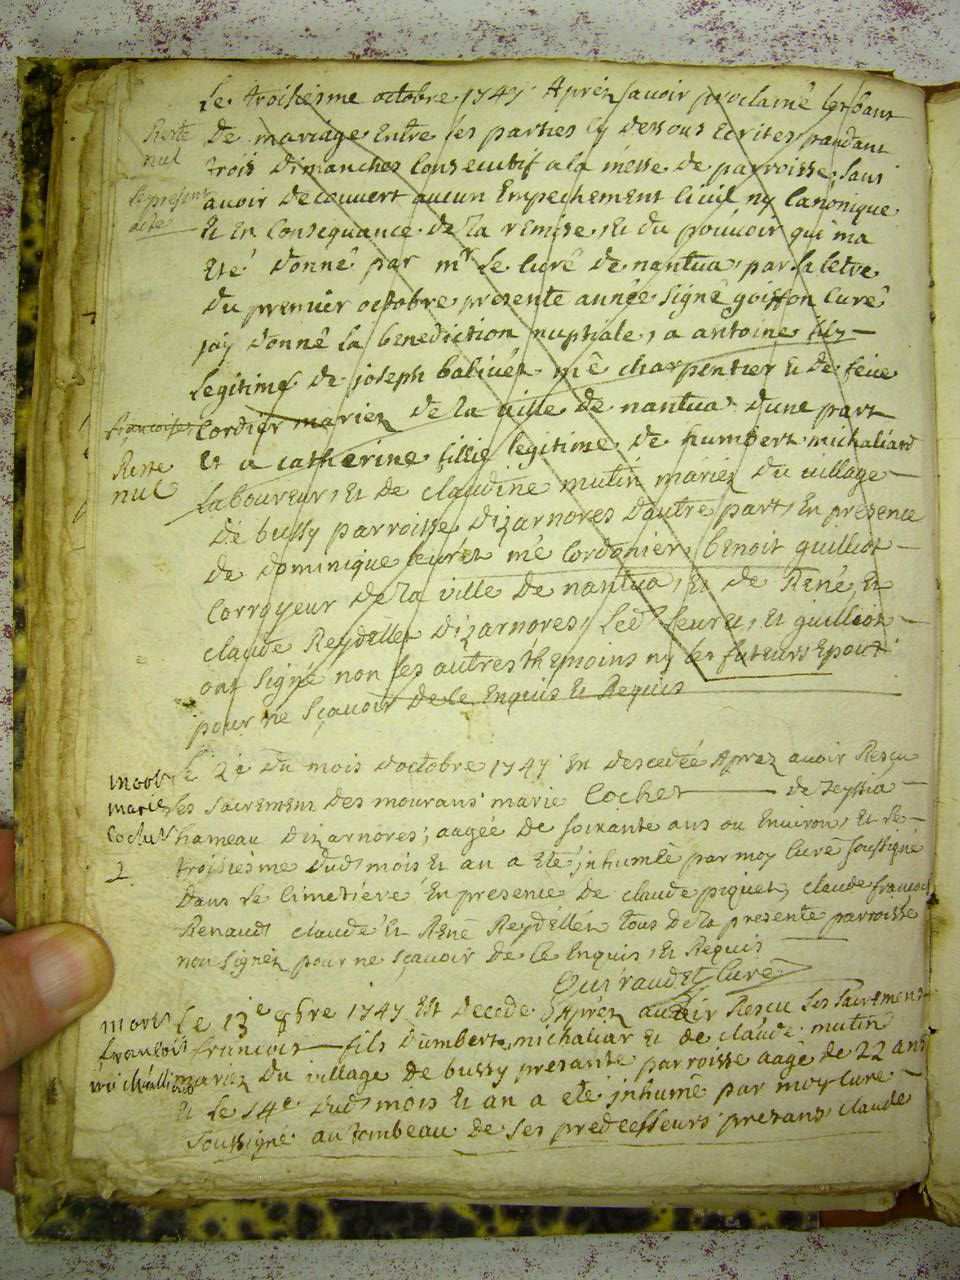 Le troisiesme octobre 1747 Aprez avoir proclamé les bans
Reste nul
de mariage Entre les parties cy dessous Ecrites pandant
trois dimanches Consecutif a la messe de parroisse, sans
le present acte
avoir decouvert aucun Empechement Civil ny Canonique
Et En Consequance de la remise, Et du pouvoir qui ma
Eté donné par mr le Curé de nantua, par sa letre
du premier octobre presente année signé goiffon Curé
jay donné la benediction nuptiale, a antoine fils
legitime de joseph balivet me charpentier Et de
Cordier mariez de la ville de nantua dune part
Et a catherine fillie legitime de humbert michaliard
Reste nul
Laboureur, Et de claudine mutin mariez du village
de bussy parroisse dizarnores dautre part, En presence
de dominique feuret me Cordonier, benoit guilliot
Corroyeur de la ville de nantua, Et de René, Et
claude Reydellet dizarnores, Led feuret, Et guilliot
ont signé non les autres themoins ny les futeurs Epoux
pour ne sçavoir de ce Enquis Et Requis
mort marie Cochet 2
Le 2e du mois doctobre 1747 En descedée Aprez avoir Resçu
les sacremens des mourans marie Cochet de
hameau dizarnores; aagée de soixante ans ou Environ, Et le
troisiesme dud mois Et an a Eté, inhumée par moy Curé soussigné
dans le cimetière En presence de claude piquet, claude françois
Renaud claude Et René Reydellet tous de la presente parroisse
non signez pour ne sçavoir de ce Enquis, Et Requis
Curé
mort françois michalliard
Le 13e 8bre 1747 Est decedé Aprez avoir Resçu les sacremens
françois fils dumbert michaliar Et de claude mutin
mariez du village de bussy presante parroisse aagé de 22 ans
Et le 14e dud mois Et an a eté inhumé par moy Curé
soussigné au tombeau de ses predecesseurs presans claude